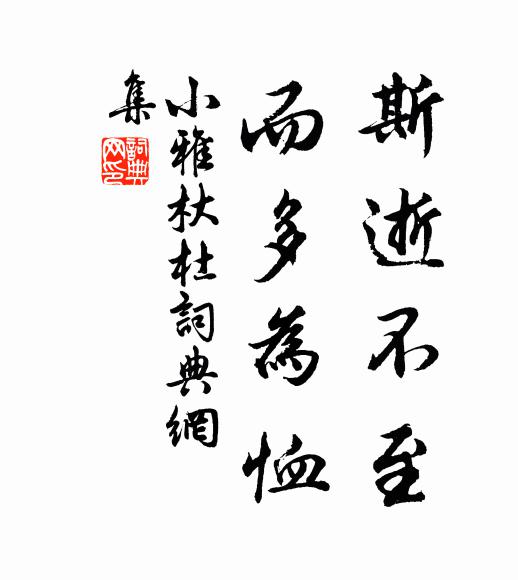 斯逝不至
而多為恤
小雅杕杜詞典網
集
詞典
网印